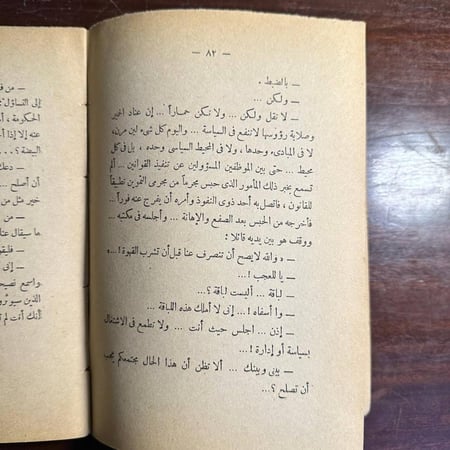 — ٨٢ —
— بالضبط .
— ولكن ...
— لا تقل ولكن ... ولا تكن حماراً ... إن عناد الحمير
وصلابة رؤوسها لا تنفع فى السياسة ... واليوم كل شىء لين مرن،
لا فى المبادىء وحدها ، ولا فى المحيط السياسى وحده ، بل فى كل
محيط ... حتى بين الموظفين المسؤولين عن تنفيذ القوانين ... ألم
تسمع بخبر ذلك المأمور الذى حبس مجرماً من مجرمى التموين تطبيقاً
للقانون ، فاتصل به أحد ذوى النفوذ وأمره أن يفرج عنه فوراً ...
فأخرجه من الحبس بعد الصفع والإهانة ... وأجلسه فى مكتبه ...
ووقف هو بين يديه قائلا :
— والله لا يصح أن تنصرف عنا قبل أن تشرب القهوة !...
— يا للعجب !...
— لباقة ... أليست لباقة ؟...
— وا أسفاه !... إنى لا أملك هذه اللباقة ...
— إذن ... اجلس حيث أنت ... ولا تطمع فى الاشتغال
بسياسة أو إدارة !...
— بينى وبينك ... ألا تظن أن هذا الحال مجتمعكم يجب
أن تصلح ؟...
— من
إلى التساؤل
الحكومة ،
عنه إلا إذا
البيضة ؟...
— دعك
أن أصلح ...
خير مثل من
— من
ما سيقال عنا
— فليقو
— إلى
واسمع نصيح
الذين سيؤثرو
أنك أنت لم